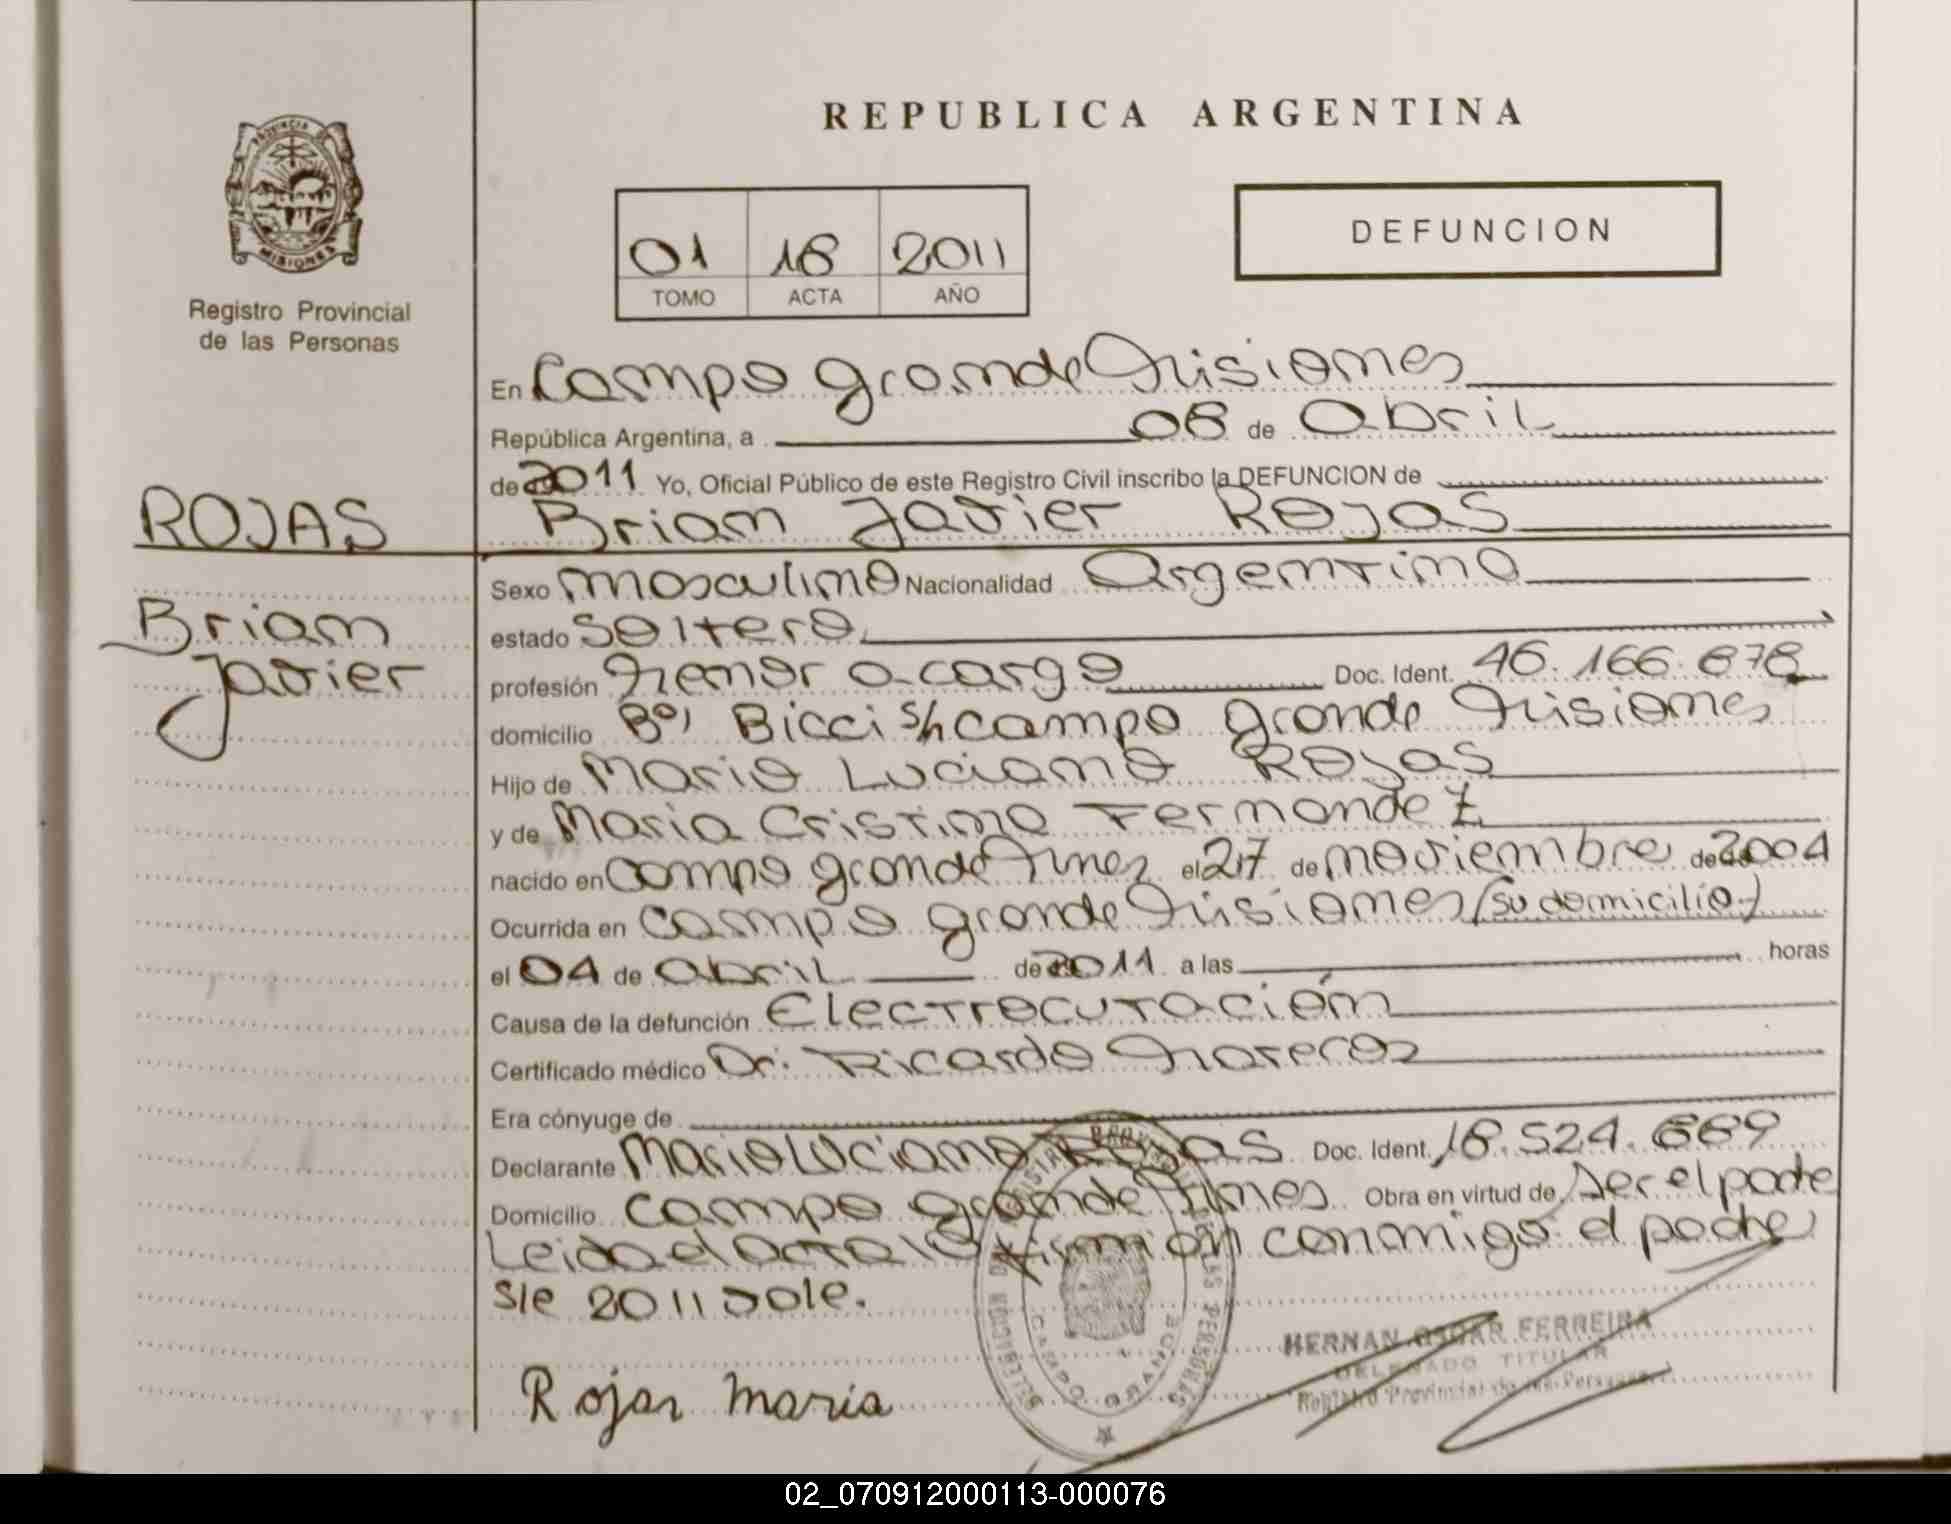 PROVINCIA DE
MISIONES
Registro Provincial
de las Personas
REPUBLICA ARGENTINA
01 18 2011
TOMO ACTA AÑO
DEFUNCION
En Campo grande Misiones
República Argentina, a 08 de Abril
de 2011 Yo, Oficial Público de este Registro Civil inscribo la DEFUNCION de
ROJAS
Brian Javier Rojas
Brian
Javier
Sexo masculino Nacionalidad Argentino
estado Soltero
profesión Menor a cargo Doc. Ident. 46.166.878
domicilio Bº Bicci s/n campo grande Misiones
Hijo de Mario Luciano Rojas
y de Maria Cristina Fernandez
nacido en campo grande Mnes el 27 de noviembre de 2004
Ocurrida en campo grande Misiones (su domicilio)
el 04 de abril de 2011 a las horas
Causa de la defunción Electrocutación
Certificado médico Dr. Ricardo
Era cónyuge de
Declarante Mario Luciano Rojas Doc. Ident. 18.524.689
Domicilio Campo grande Mnes Obra en virtud de Ser el padre
Leida el acta la firman conmigo el padre
s/e 2011 vale.
HERNAN OSCAR FERREIRA
DELEGADO TITULAR
Registro Provincial de las Personas
CAMPO GRANDE
Rojas Maria
02_070912000113-000076